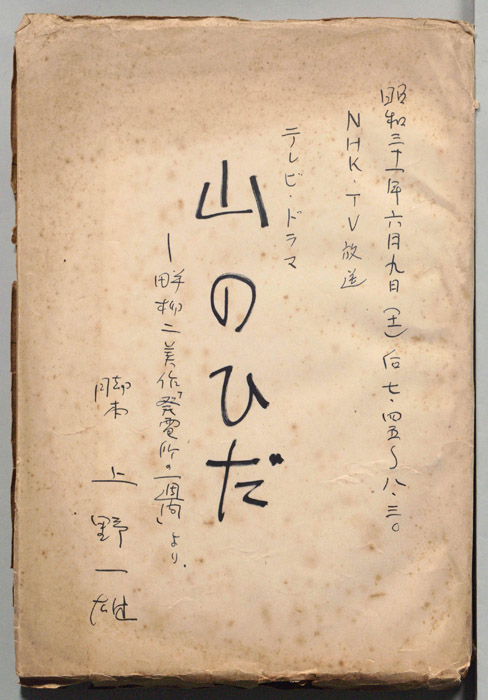 昭和三十一年六月九日(土)后七・四五〜八・三〇
NHK・TV放送
テレビ・ドラマ
山のひだ
ー畔柳二美作「発電所の一週間」より
脚本 上野一雄